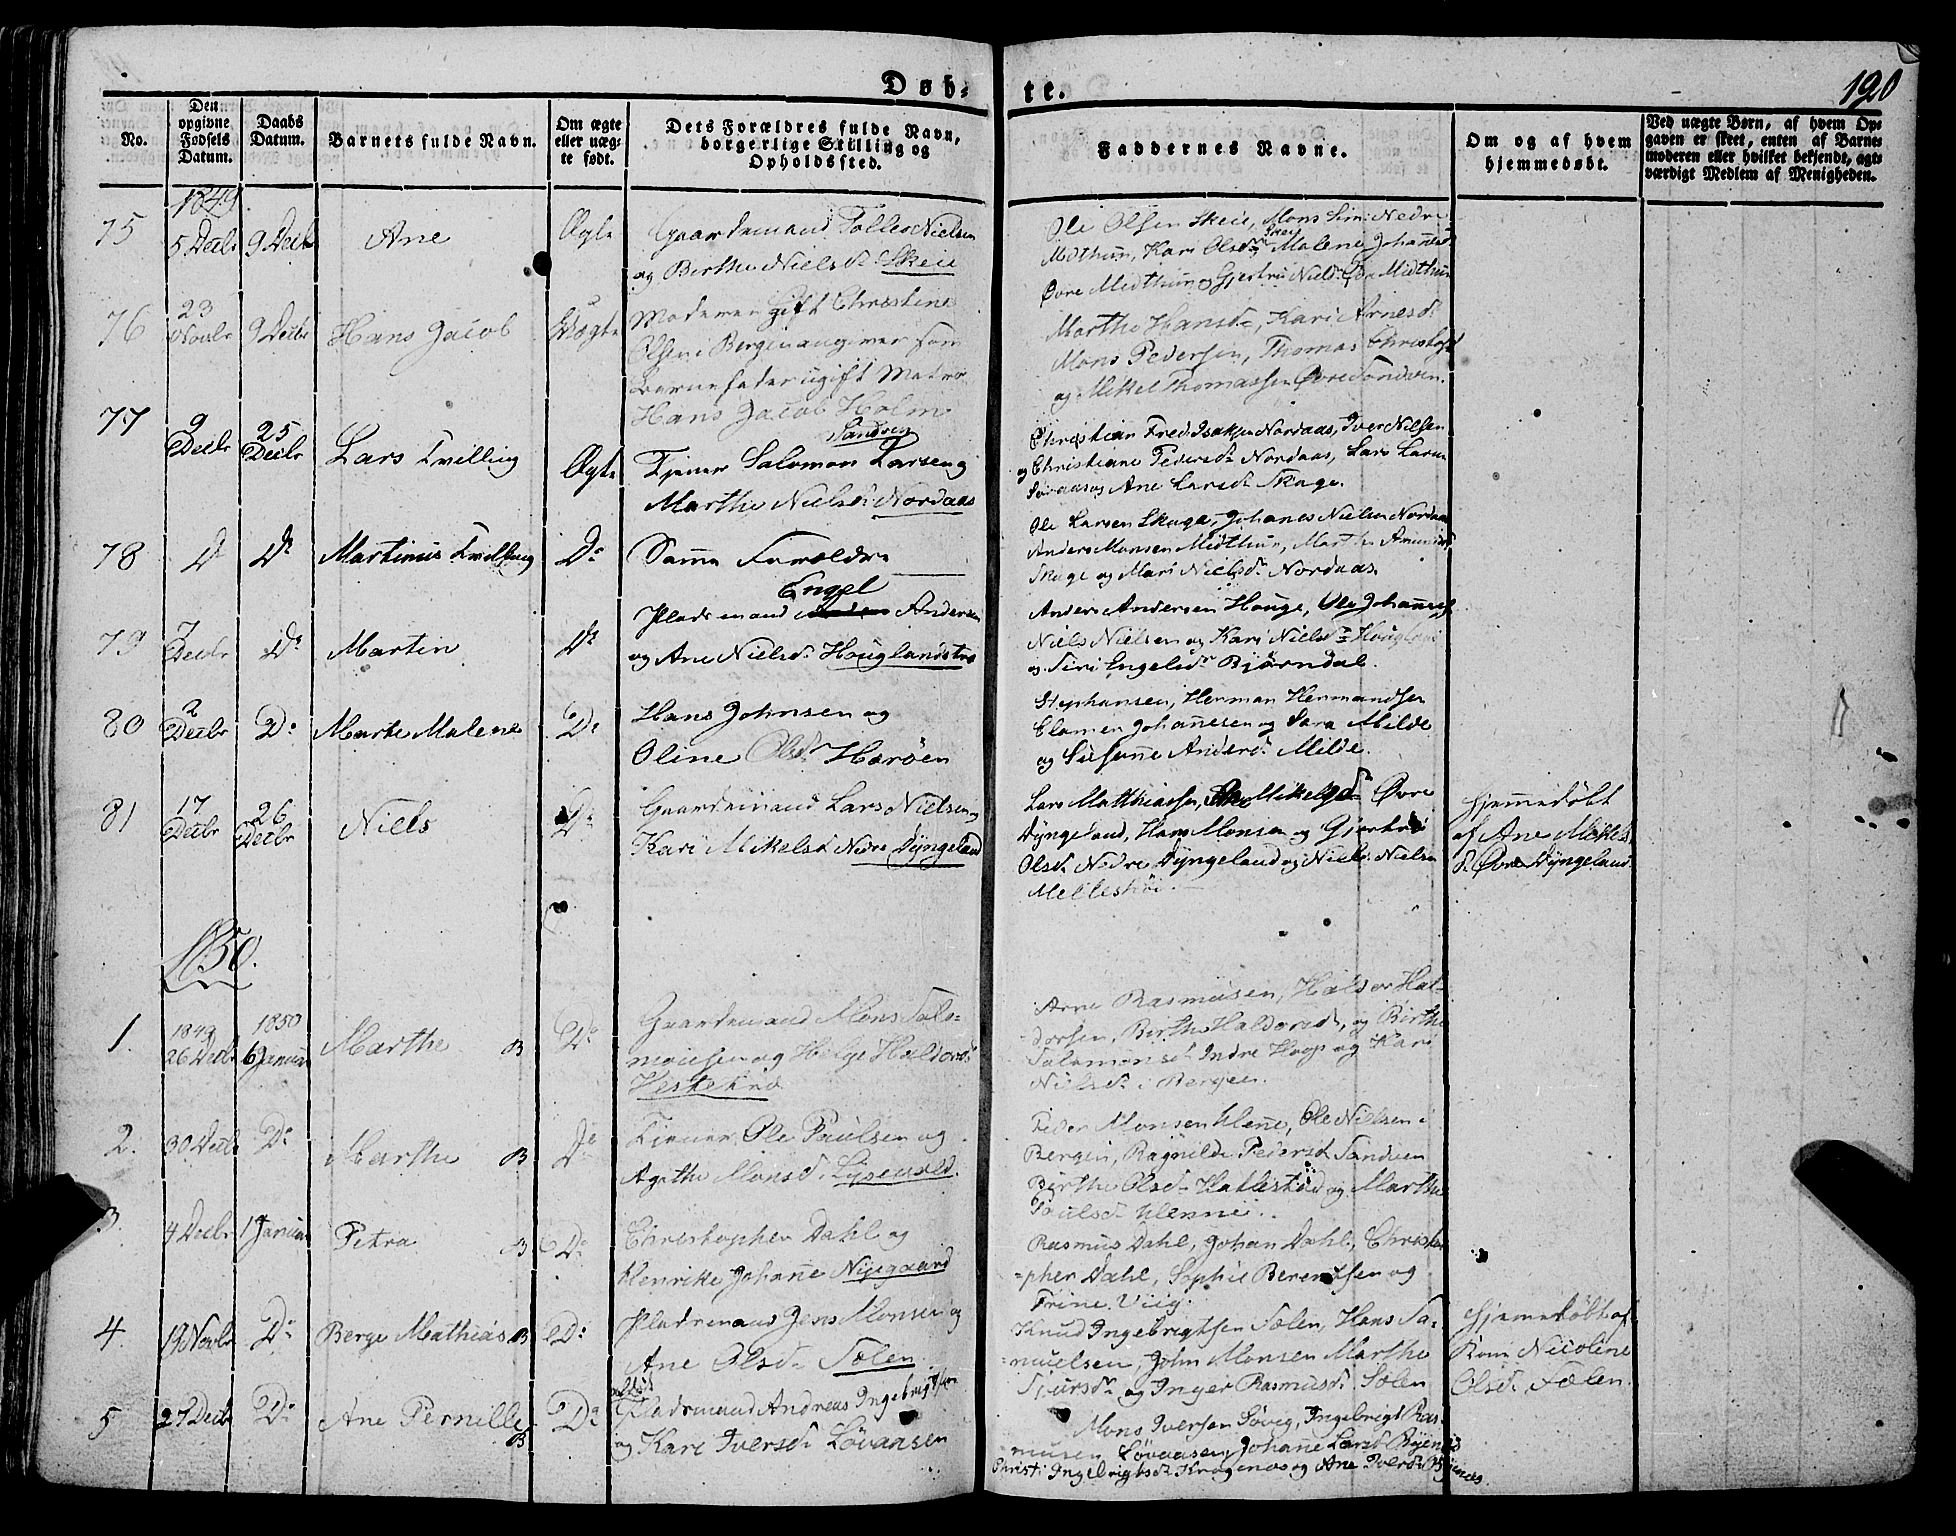 Døb- te.
190
No.
Den opgivne Fødsels Datum.
Daabs Datum.
Barnets fulde Navn.
Om ægte eller uægte født.
Dets Forældres fulde Navn, borgerlige Stilling og Opholdssted.
Faddernes Navne.
Om og af hvem hjemmedøbt.
Ved uægte Børn, af hvem Opgaven er skeet, enten af Barnemoderen eller hvilket bekjendt, agtværdigt Medlem af Menigheden.
1849
75
5 Decbr
9 Decbr
Ane
Ægte
Gaardemand Tollev Nielsen
og Birthe Nielsd. Skeie
Ole Olsen Skeie, Mons Nedre
Midthun, Kari Olsdr Malene Johannesd
Øvre Midthun og Gjertru Nielsd. Midthun
76
23
Novbr
9 Decbr
Hans Jacob
Uægte
Moderen Gift Christine
Olsen i Bergen angiver som
Barnefader ugift Matros
Hans Jacob Holm
Marthe Hansd., Kari Arnesd.
Mons Pedersen, Thomas Christophs
og Mikel Thomassen
77
9
Decbr
25
Decbr
Lars Tvilling
Ægte
Sandven
Tjener Salomon Larsen og
Marthe Nielsd. Nordaas
Christian Fred. Isaksen Nordaas, Iver Nielsen
og Christiane Pedersd. Nordaas, Lars Larsen
Søvaas og Ane Larsd. Skage.
78
D
Do
Martinus Tvilling
Do
Samme Forældre
Ole Larsen Skage, Johanes Nielsen Nordaas
Anders Monsen Midthun, Marthe Amundsd.
Skage og Mari Nielsd. Nordaas.
79
7
Decbr
Do
Martin
Do
Engel
Pladsmand Andersen
og Ane Nielsd. Houglandstræ
Anders Andersen Houge, Ole Johannes
Niels Nielsen og Kari Nielsd. Hougland
og Siri Engelsdr Bjørndal.
80
2
Decbr
Do
Marte Malene
Do
Hans Johnsen og
Oline Olsdr Harøen
Stephansen, Herman Hermandsen
Clamen Johannesen og Sara Milde
og Susanne Andersd. Milde.
81
17
Decbr
26
Decbr
Niels
Do
Gaardemand Lars Nielsen og
Kari Mikelsd Nedre Dyngeland
Lars Matthiassen, Ane Mikelsd. Øvre
Dyngeland, Hans Monsen og Gjertru
Olsd. Nedre Dyngeland og Niels Nielsen
Hjemmedøbt
af Ane Mikels
d. Øvre Dyngeland
1850.
1.
1849
26 Decbr
1850
6 Januar
Marthe B
Do
Gaardemand Mons Salo-
monsen og Helge Haldorsd.
Arne Rasmusen, Haldor Hal-
dorsen, Birthe Haldorsd., og Birthe
Salomonsd. Indre Hoop og Kari
Nielsd. i Bergen.
2.
30 Decbr
Do
Marthe B
Do
Tjener Ole Paulsen og
Agathe Monsd. Lyseuold.
Peder Monsen Uleue, Ole Nielsen i
Bergen, Ragnilde Pedersd. Sandven
Birthe Olsd. Hatlestad og Marthe
Paulsd.
3.
4 Decbr
1 Januar
Petra B
Do
Christopher Dahl og
Henrike Johanne Nygaard
Rasmus Dahl, Johan Dahl, Christo-
pher Dahl, Sophie Berentsen og
Trine Viig.
4.
19 Novbr
Do
Berge Mathias B
Do
Pladsmand Jens Monsen og
Ane Olsd. Sælen
Knud Ingebrigtsen Sælen, Hans Sa-
muelsen, John Monsen Marthe
Sjursdr og Inger Rasmusd. Sælen
Hjemmedøbt af
Kone Nicoline
Olsd. Sælen.
5
27 Decbr
Do
Ane Pernille
B
Do
Pladsmand Andreas Ingebrigtsen
og Kari Iversd. Løvaasen
Mons Iversen Søvig, Ingebrigt Ras-
musen Løvaasen, Johanne Larsd. Byenes
Christi Ingebrigtsd. Kragenæs og Ane Iversd. Byenæs.